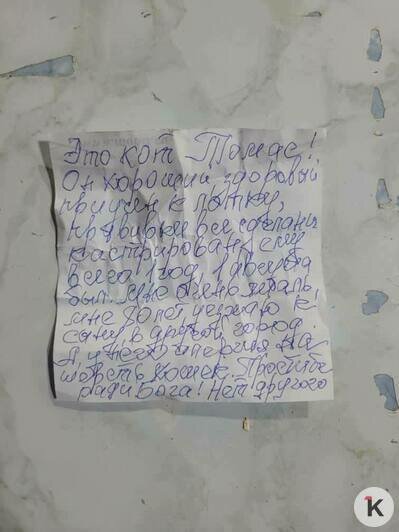 Это кот Томас!
Он хороший здоровый
приучен к лотку,
прививки все сделаны
кастрирован, ему
всего 1 год, 1 августа
был. Мне очень жаль,
мне 70 лет, уезжаю к
сыну в другой город.
А у него аллергия на
шерсть кошек. Простите
ради Бога! Нет другого
K